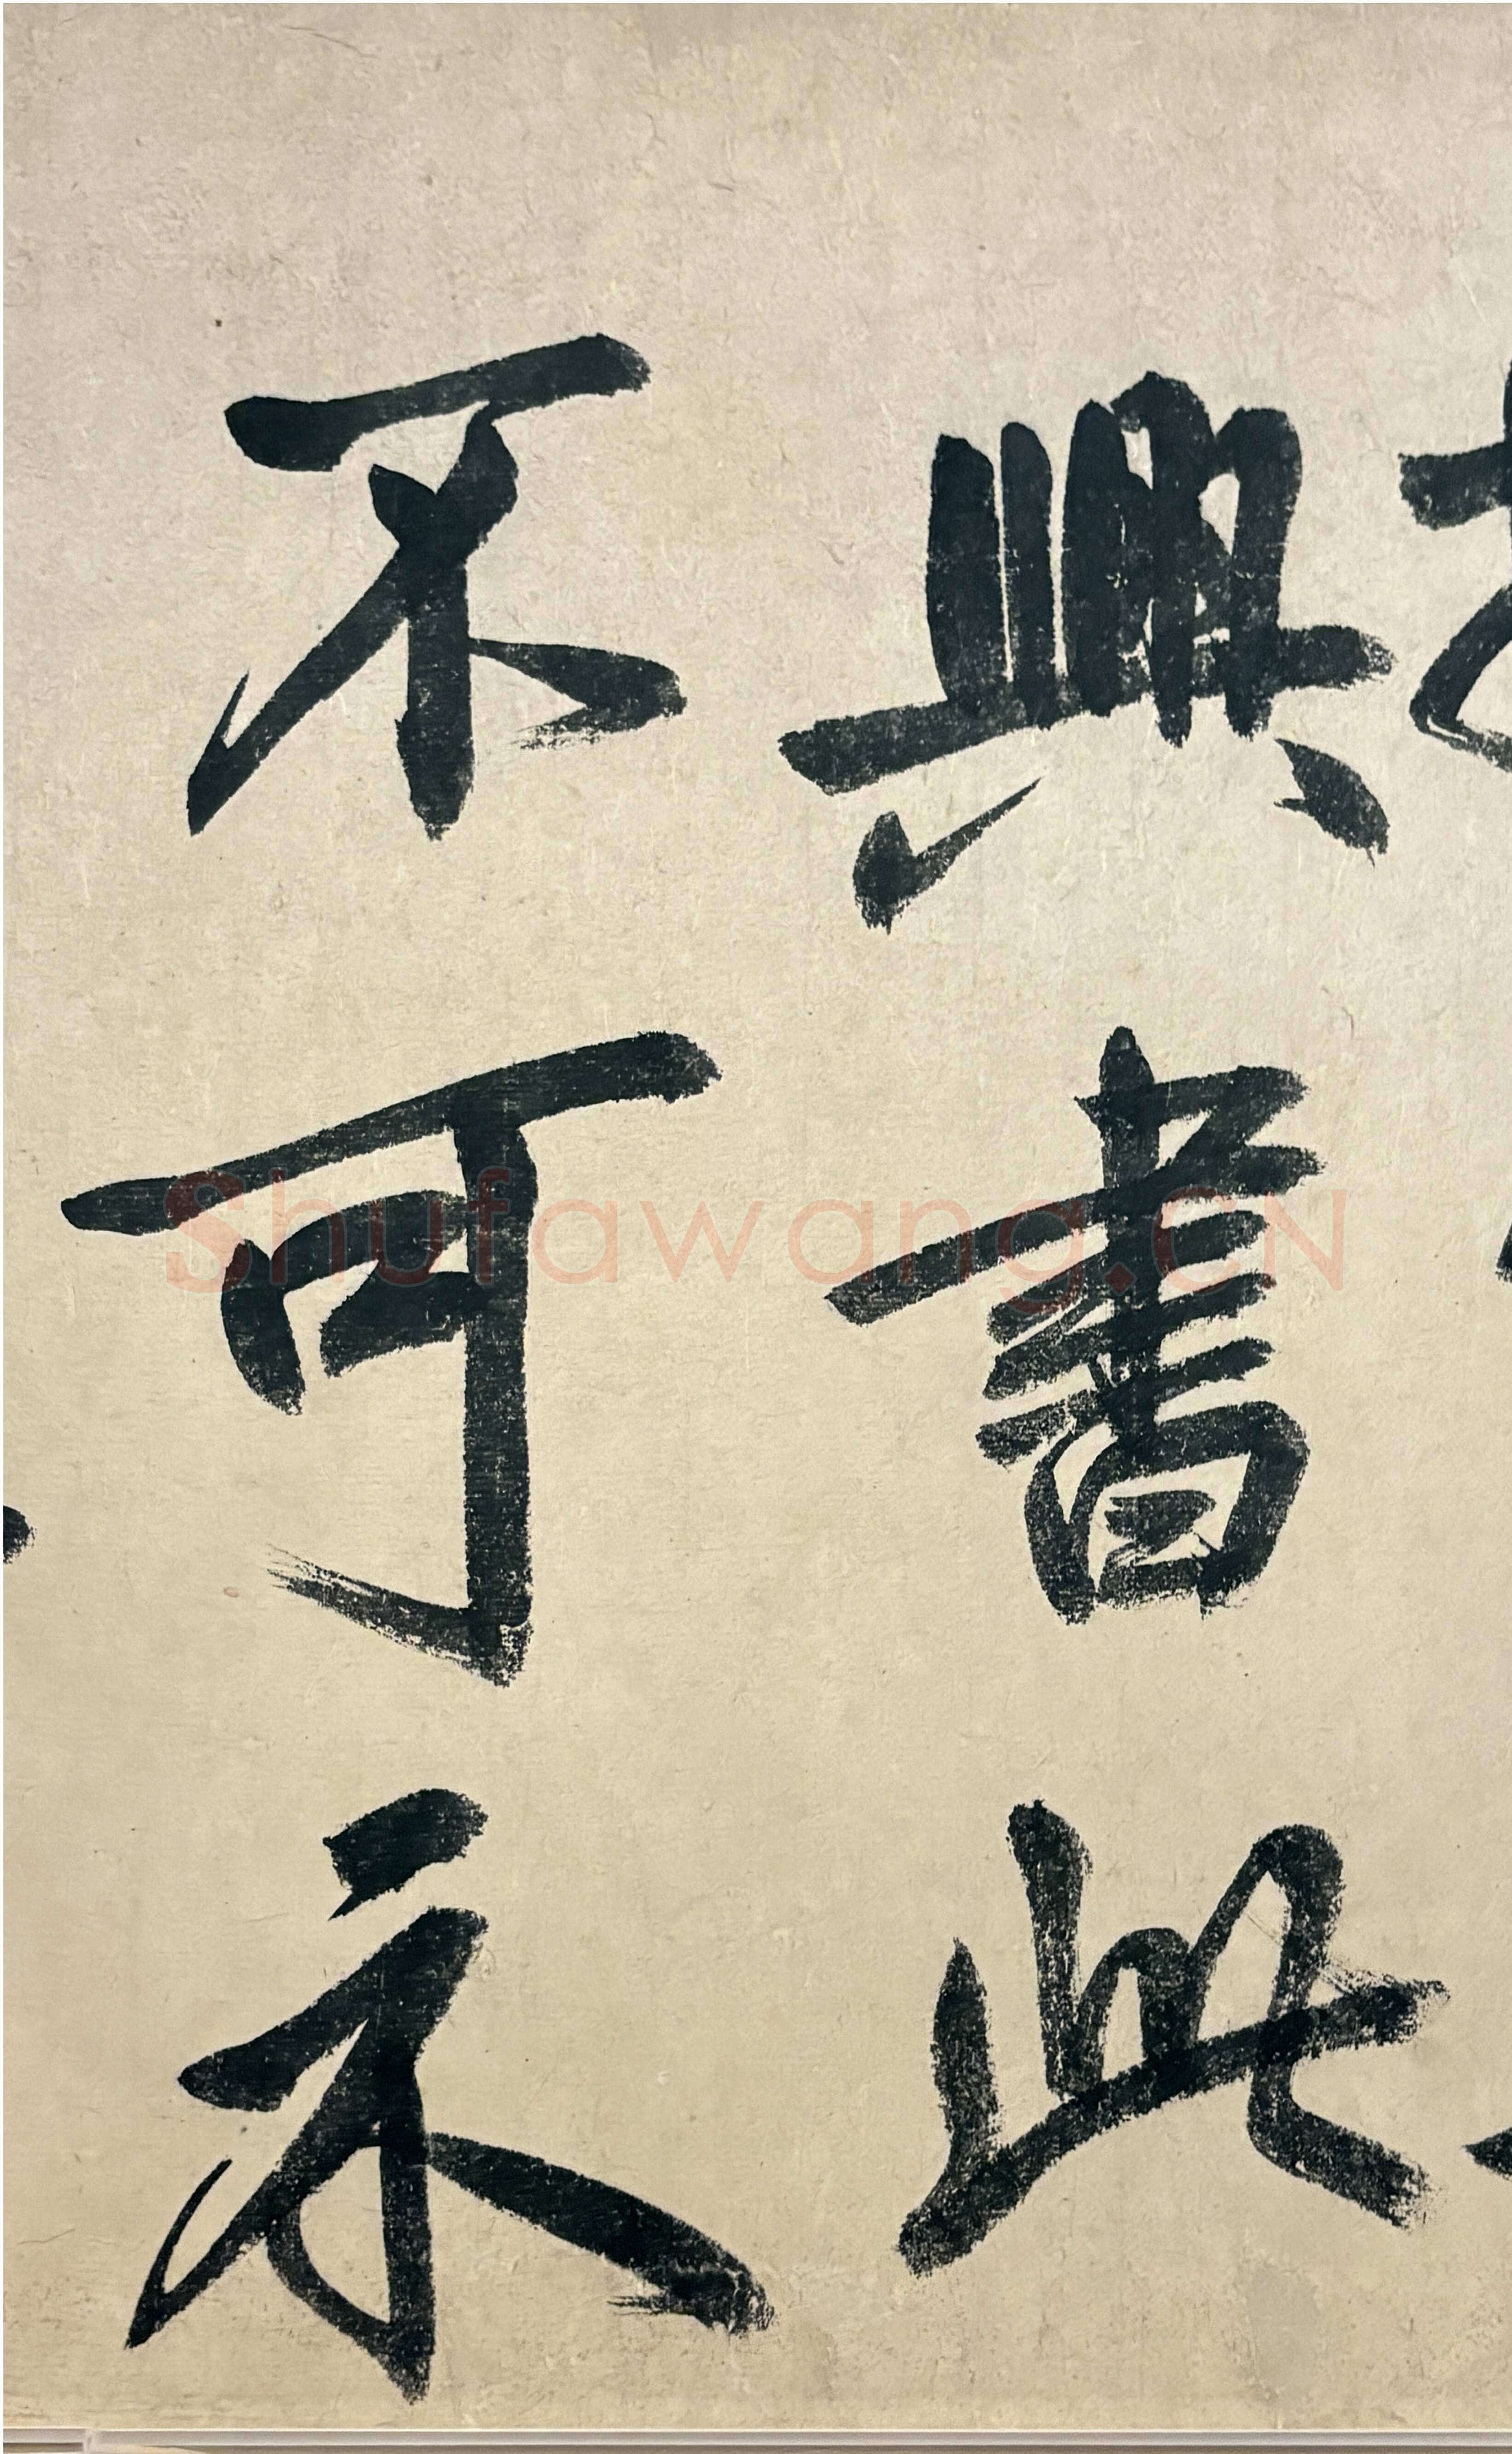 興書此
不可示
Shufawang.CN